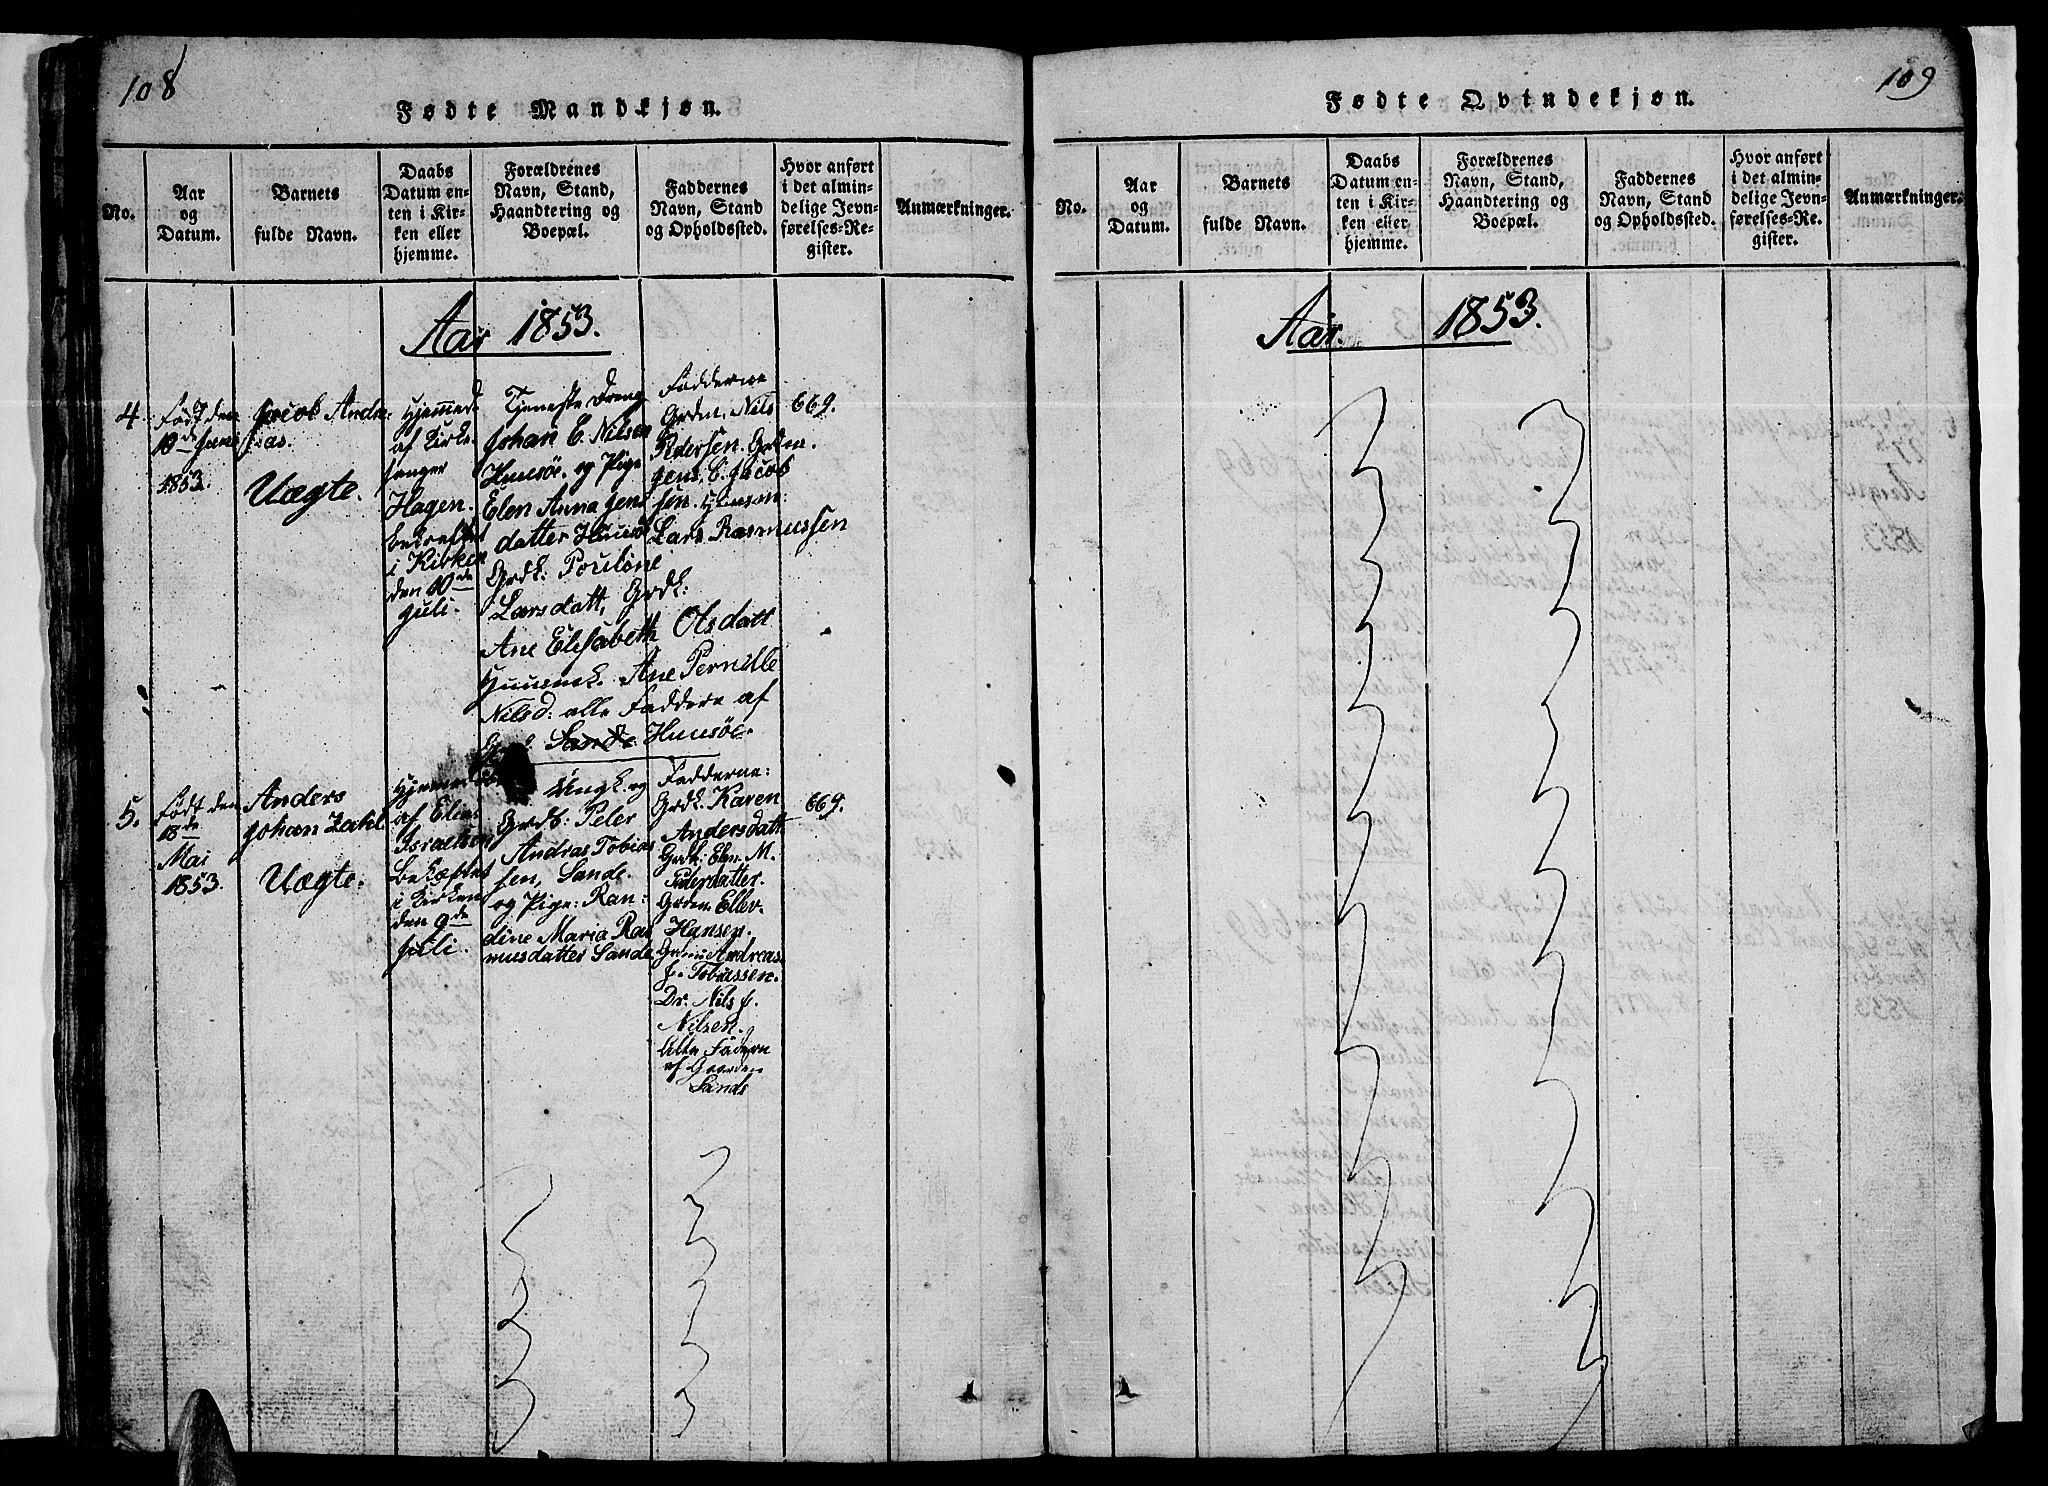 108
Fødte Mandkjøn.
No.
Aar
og
Datum.
Barnets
fulde Navn.
Daabs
Datum en-
ten i Kir-
ken eller
hjemme.
Forældrenes
Navn, Stand,
Haandtering og
Boepæl.
Faddernes
Navn, Stand
og Opholdssted.
Hvor anført
i det almin-
delige Jevn-
førelses-Re-
gister.
Anmærkninger.
Aar 1853.
4.
Født den
10de Juni
1853.
Jacob Andr-
eas.
Uægte.
Hjemmed.
af Kirke-
sanger
Hagen.
bekreftet
i Kirken
den 10de
Juli.
Tjeneste Dreng
Johan E. Nilsen
Huusöe. og Pige
Elen Anna Jens
datter Huusö
Fadderne
Grdm. Nils
Pedersen. Grdm.
Jens. C. Jacob
sen. Huusm:
Lars. Rasmussen
Grdk:
Larsdatt, Grdk:
Ane Elisabeth Olsdatt
Huusmk. Ane Pernille
Nilsd: alle Faddere af
Sande Huusöe.
669.
5.
Født den
18de
Mai
1853.
Anders
Johan Zahl
Uægte.
Hjemmedöbt
af Elias
Israelsen
Bekæftet
i Kirken
den 9de
Juli.
Ungk. og
Grdb: Peter
Andras Tobias
sen, Sande.
og Pige: Ran:
dine Maria Ras
musdatter Sande
Fadderne:
Grdk. Karen
Andersdatt
Grdk: Elen M.
Pedersdatter.
Grdm. Ellev.
Hansen.
Andreas
J. Tobiassen.
Dr. Nils J.
Nilsen.
Alle Faddern
af Gaarden
Sande
669.
109
Fødte Qvindekjøn.
No.
Aar
og
Datum.
Barnets
fulde Navn.
Daabs
Datum en-
ten i Kir-
ken eller
hjemme.
Forældrenes
Navn, Stand,
Haandtering og
Boepæl.
Faddernes
Navn, Stand
og Opholdssted.
Hvor anført
i det almin-
delige Jevn-
førelses-Re-
gister.
Anmærkninger.
Aar. 1853.